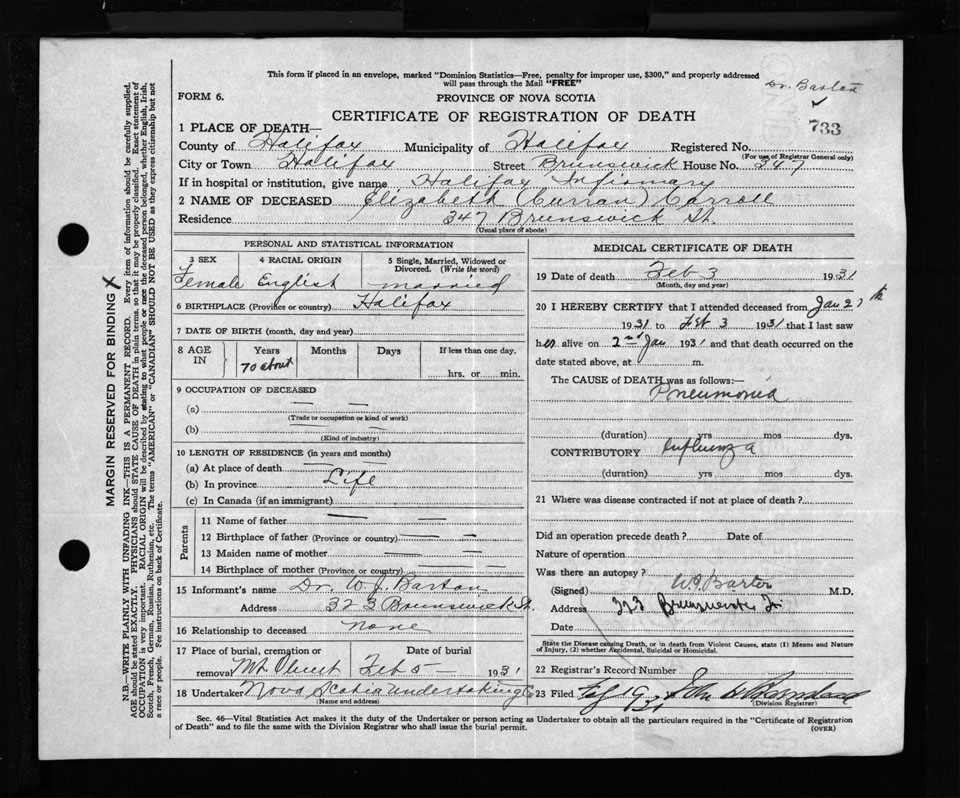 This form if placed in an envelope, marked "Dominion Statistics—Free, penalty for improper use, $300," and properly addressed
will pass through the Mail "FREE"
Dr. Barton
FORM 6.
PROVINCE OF NOVA SCOTIA
CERTIFICATE OF REGISTRATION OF DEATH
733
1 PLACE OF DEATH—
County of Halifax Municipality of Halifax Registered No.
(For use of Registrar General only)
City or Town Halifax Street Brunswick House No. 347
If in hospital or institution, give name Halifax Infirmary
2 NAME OF DECEASED Elizabeth (Curran) Carroll
Residence 347 Brunswick St.
(Usual place of abode)
PERSONAL AND STATISTICAL INFORMATION
3 SEX 4 RACIAL ORIGIN 5 Single, Married, Widowed or
Divorced. (Write the word)
Female English married
6 BIRTHPLACE (Province or country) Halifax
7 DATE OF BIRTH (month, day and year)
8 AGE IN Years Months Days If less than one day.
70 about hrs. or min.
9 OCCUPATION OF DECEASED
(a) — —
(Trade or occupation or kind of work)
(b) — —
(Kind of industry)
10 LENGTH OF RESIDENCE (in years and months)
(a) At place of death
(b) In province Life
(c) In Canada (if an immigrant)
Parents
11 Name of father — —
12 Birthplace of father (Province or country) — —
13 Maiden name of mother — —
14 Birthplace of mother (Province or country) — —
15 Informant's name Dr. W. J. Barton
Address 323 Brunswick St.
16 Relationship to deceased None
17 Place of burial, cremation or Date of burial
removal Mt Olivet Feb 5 1931
18 Undertaker Nova Scotia Undertaking Co
(Name and address)
MEDICAL CERTIFICATE OF DEATH
19 Date of death Feb 3 1931
(Month, day and year)
20 I HEREBY CERTIFY that I attended deceased from Jan 27th
1931 to Feb 3 1931 that I last saw
her alive on 2nd Jan 1931 and that death occurred on the
date stated above, at m.
The CAUSE of DEATH was as follows:—
Pneumonia
(duration) yrs mos dys.
CONTRIBUTORY Influenza
(duration) yrs mos dys.
21 Where was disease contracted if not at place of death?
Did an operation precede death? Date of
Nature of operation
Was there an autopsy?
(Signed) W J Barton M.D.
Address 323 Brunswick St
Date
State the Disease causing Death, or in death from Violent Causes, state (1) Means and Nature
of Injury, (2) whether Accidental, Suicidal or Homicidal.
22 Registrar's Record Number
23 Filed Feb 19 1931
(Division Registrar)
Sec. 46—Vital Statistics Act makes it the duty of the Undertaker or person acting as Undertaker to obtain all the particulars required in the "Certificate of Registration
of Death" and to file the same with the Division Registrar who shall issue the burial permit. (OVER)
MARGIN RESERVED FOR BINDING X
N.B.—WRITE PLAINLY WITH UNFADING INK—THIS IS A PERMANENT RECORD. Every item of information should be carefully supplied.
AGE should be stated EXACTLY. PHYSICIANS should STATE CAUSE OF DEATH in plain terms, so that it may be properly classified. Exact statement of
OCCUPATION is very important. RACIAL ORIGIN will be described by stating to what people or race the deceased person belonged, whether English, Irish,
Scotch, French, German, Russian, Ruthenian, etc. The terms "AMERICAN" or "CANADIAN" SHOULD NOT BE USED as they express citizenship but not
a race or people. See instructions on back of Certificate.